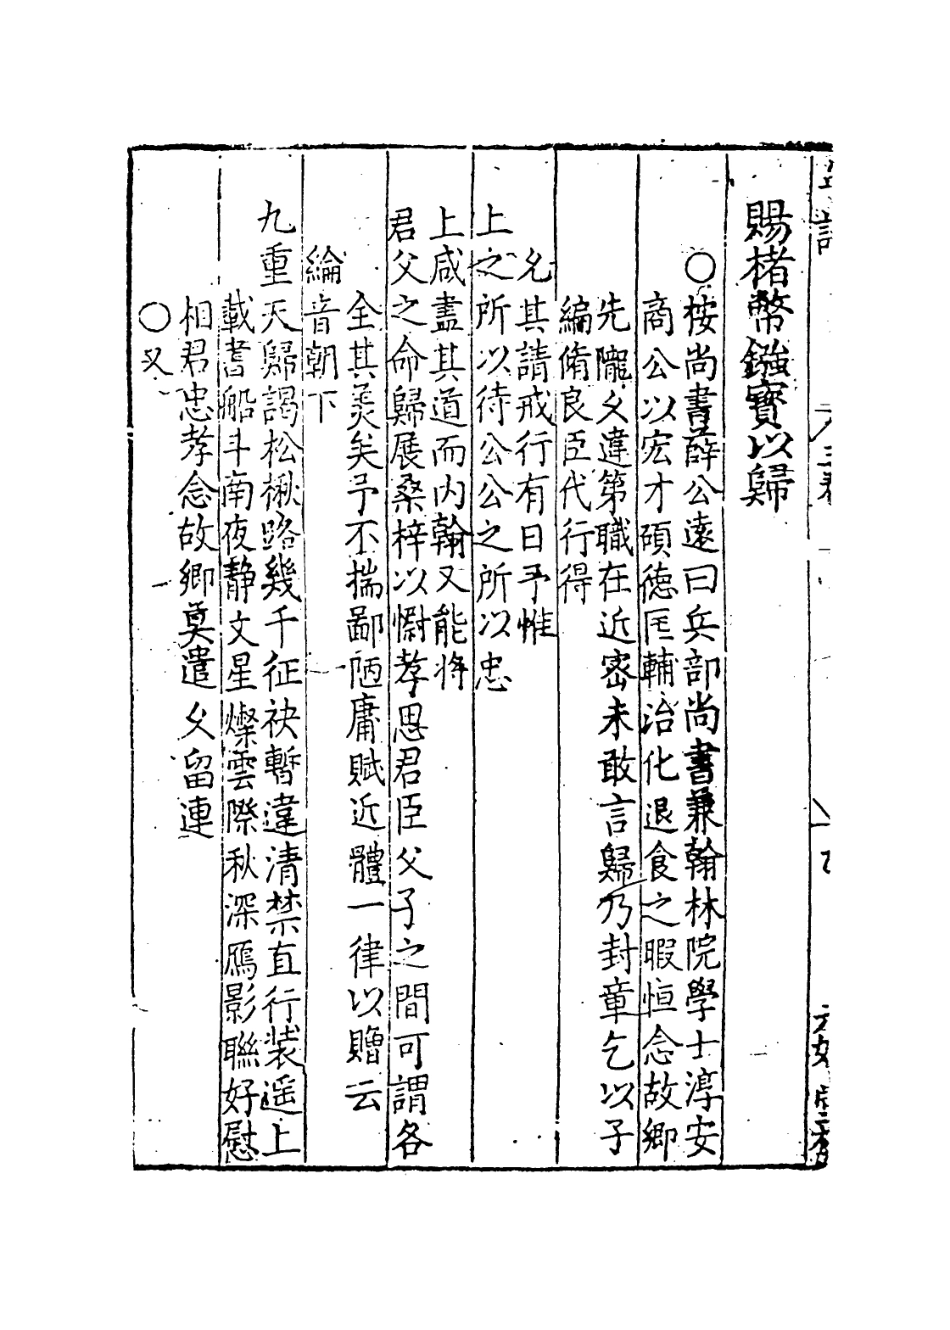 賜楮幣鏹寳以歸
○按尚書薛公遠曰兵部尚書兼翰林院學士淳安
商公以宏才碩徳匡輔治化退食之暇恒念故鄉
先隴乆違第職在近密未敢言歸乃封章乞以子
編脩良臣代行得
允其請戒行有日予惟
上之所以待公公之所以忠
上咸盡其道而内翰又能将
君父之命歸展桑梓以慰孝思君臣父子之間可謂各
全其羙矣予不揣鄙陋庸賦近體一律以贈云
綸音朝下
九重天歸謁松楸路幾千征袂暫違清禁直行装遥上
載書船斗南夜静文星燦雲際秋深鴈影聯好慰
相君忠孝念故鄉奠遣乆留連
○又